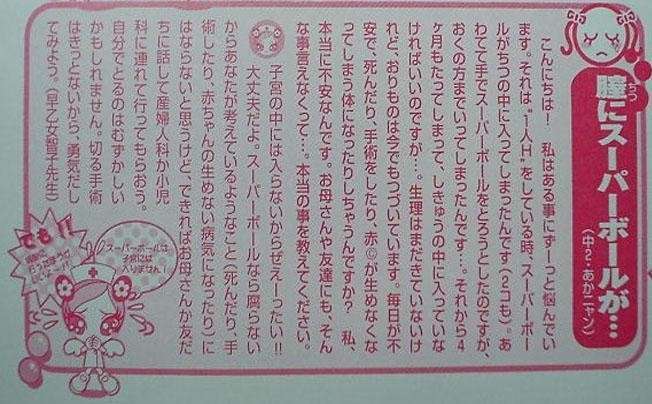 膣にスーパーボールが…
ちつ
(中2・あかニャン)
こんにちは! 私はある事にずーっと悩んでい
ます。それは"一人H"をしている時、スーパーボー
ルがちつの中に入ってしまったんです(2コも)。あ
わてて手でスーパーボールをとろうとしたのですが、
おくの方までいってしまったんです…。それから4
ヶ月もたってしまって、しきゅうの中に入っていな
ければいいのですが…。生理はまだきていないけ
れど、おりものは今でもつづいています。毎日が不
安で、死んだり、手術をしたり、赤©が生めなくな
ってしまう体になったりしちゃうんですか? 私、
本当に不安なんです。お母さんや友達にも、そん
な事言えなくって…。本当の事を教えてください。
子宮の中には入らないからぜえーったい!!
大丈夫だよ。スーパーボールなら腐らない
からあなたが考えているようなこと(死んだり、手
術したり、赤ちゃんの生めない病気になったり)に
はならないと思うけど、できればお母さんか友だ
ちに話して産婦人科か小児
科に連れて行ってもらおう。
自分でとるのはむずかしい
かもしれません。切る手術
はきっとないから、勇気だし
てみよう。(早乙女智子先生)
スーパーボールは
子宮には
入りません!
でも!!